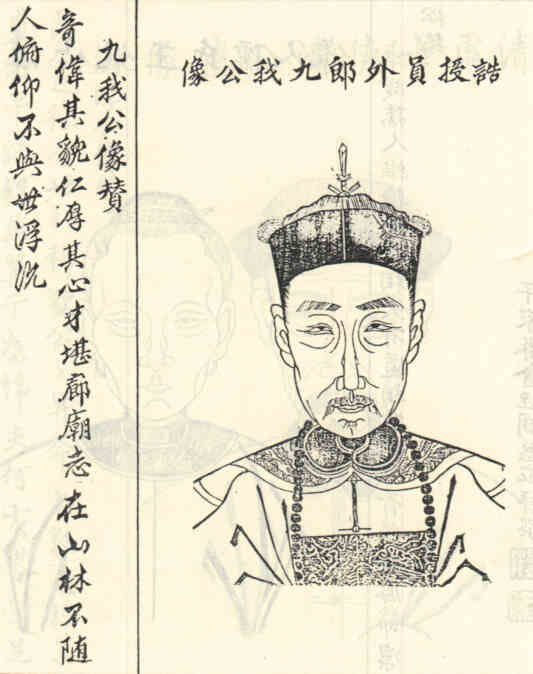 誥授員外郎九我公像
九我公像贊
奇偉其貌仁厚其心才堪廊廟志在山林不随
人俯仰不與世浮沉